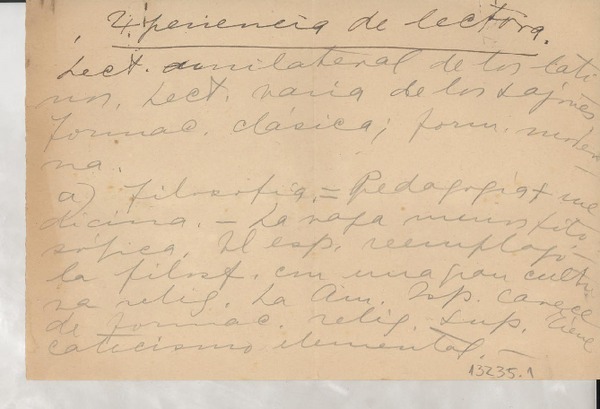 Xperiencia de lectora.
Lect. unilateral de los lati
nos. Lect. varia de los sajones
Formac. clásica; form. moder
na.
a) Filosofía. = Pedagogía y me
dicina. - La raza menos filo
sófica. El esp. reemplazó
la filosf. con una gran cultu
ra relig. La Am. Esp. carece
de formac. relig. sup. Tiene
catecismo elemental. -
13235.1